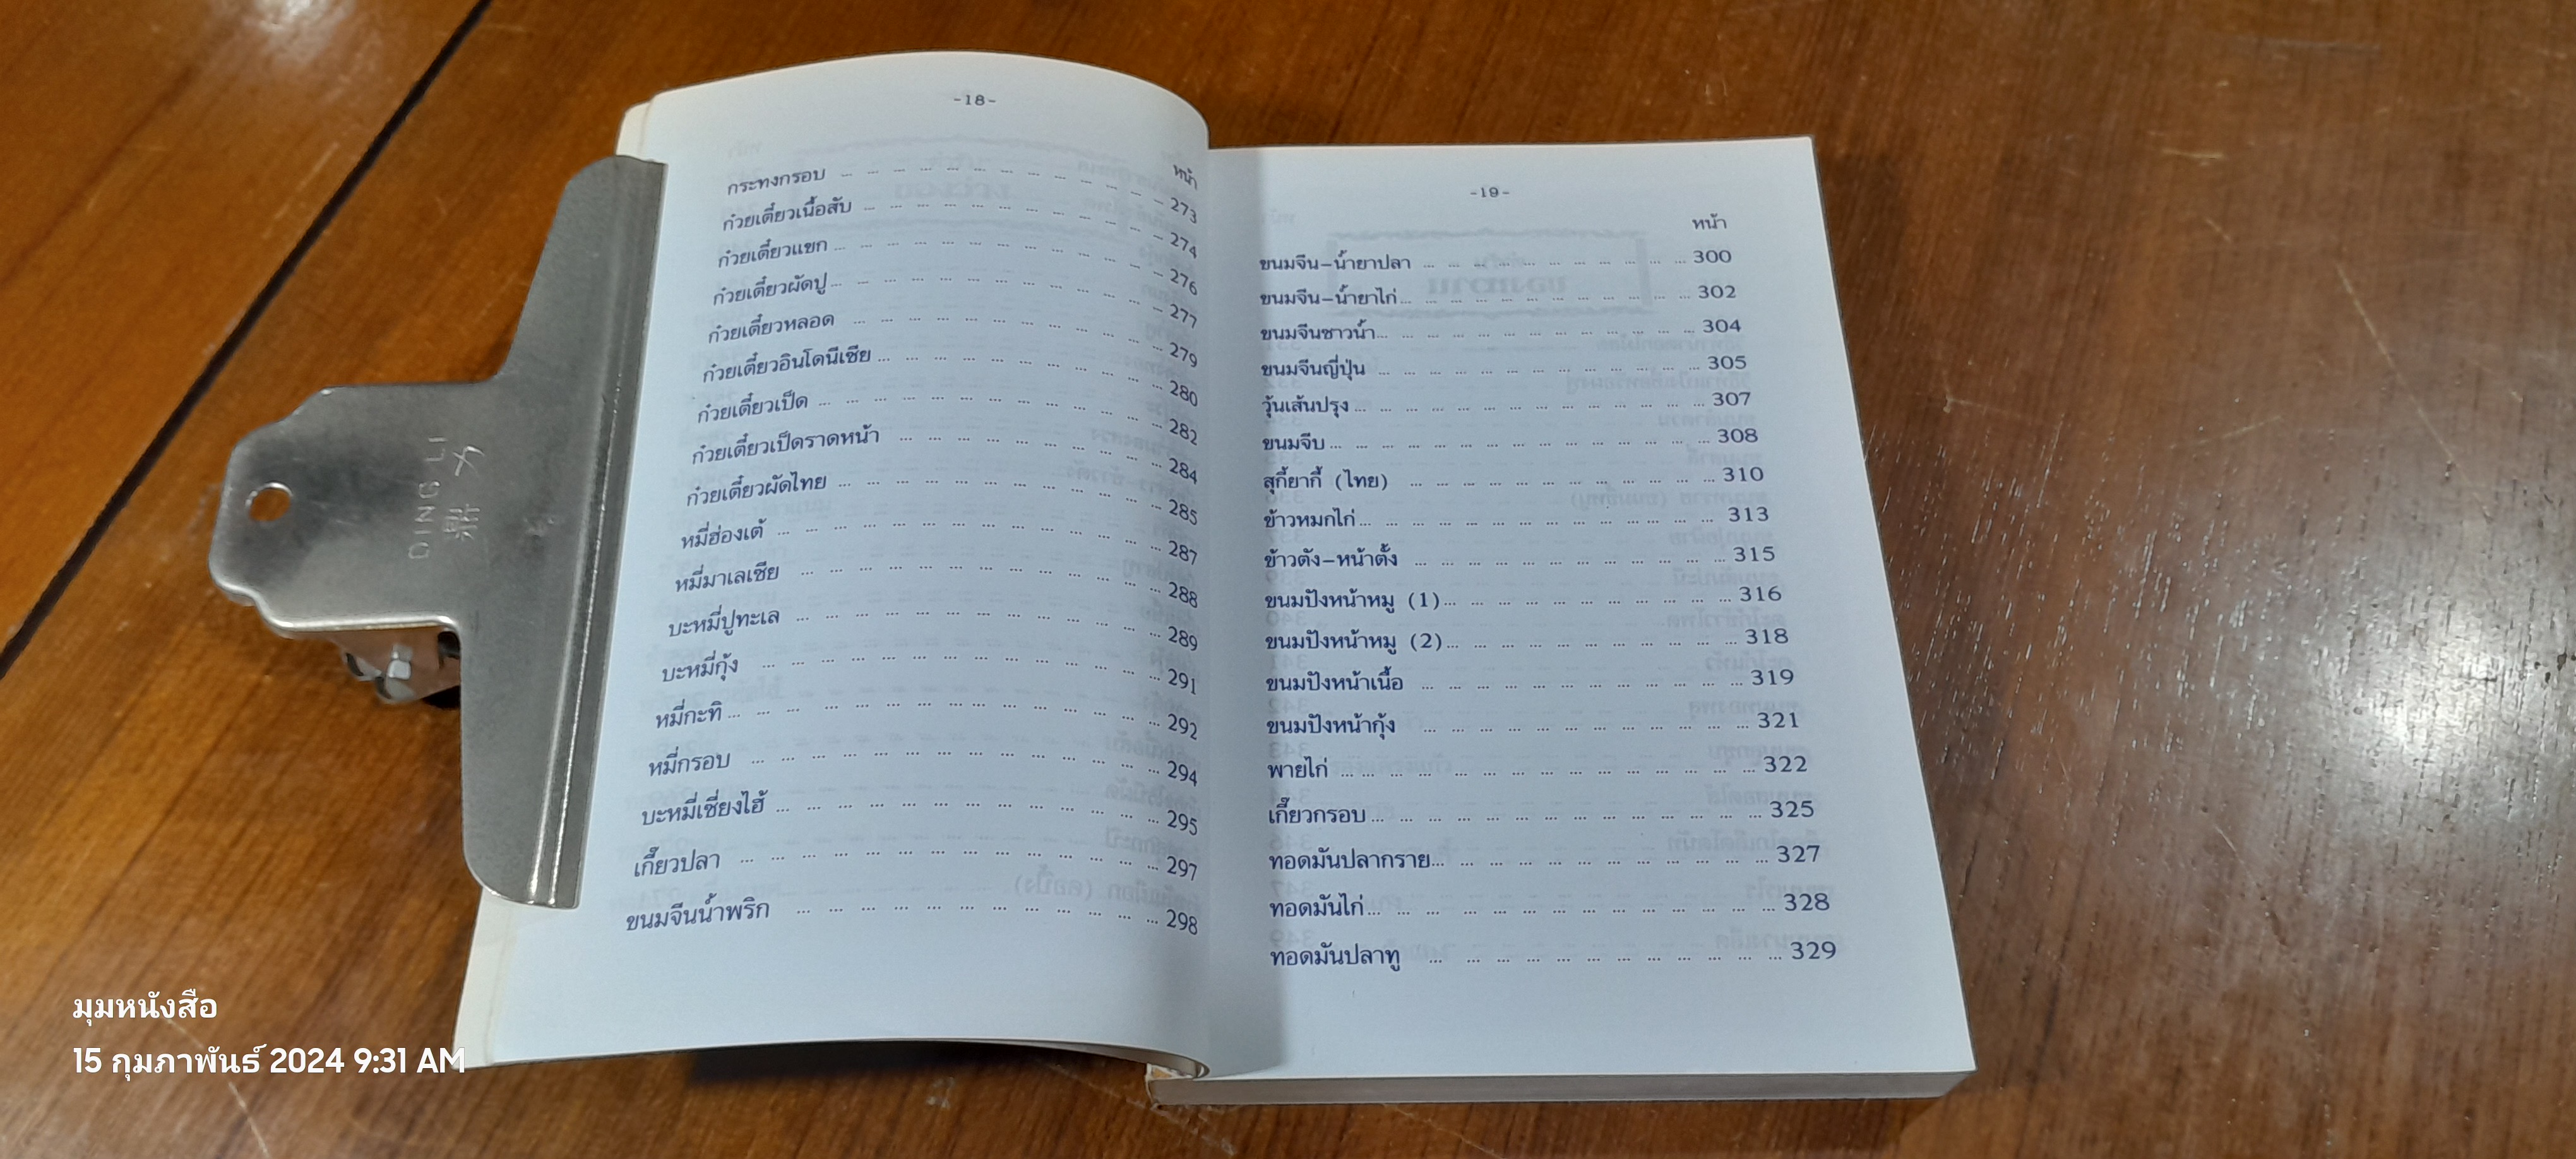 -18-
หน้า
กระทงกรอบ ... 273
ก๋วยเตี๋ยวเนื้อสับ ... 274
ก๋วยเตี๋ยวแขก ... 276
ก๋วยเตี๋ยวผัดปู ... 277
ก๋วยเตี๋ยวหลอด ... 279
ก๋วยเตี๋ยวอินโดนีเซีย ... 280
ก๋วยเตี๋ยวเป็ด ... 282
ก๋วยเตี๋ยวเป็ดราดหน้า ... 284
ก๋วยเตี๋ยวผัดไทย ... 285
หมี่ฮ่องเต้ ... 287
หมี่มาเลเซีย ... 288
บะหมี่ปูทะเล ... 289
บะหมี่กุ้ง ... 291
หมี่กะทิ ... 292
หมี่กรอบ ... 294
บะหมี่เซี่ยงไฮ้ ... 295
เกี๊ยวปลา ... 297
ขนมจีนน้ำพริก ... 298
-19-
หน้า
ขนมจีน-น้ำยาปลา ... 300
ขนมจีน-น้ำยาไก่ ... 302
ขนมจีนซาวน้ำ ... 304
ขนมจีนญี่ปุ่น ... 305
วุ้นเส้นปรุง ... 307
ขนมจีบ ... 308
สุกี้ยากี้ (ไทย) ... 310
ข้าวหมกไก่ ... 313
ข้าวตัง-หน้าตั้ง ... 315
ขนมปังหน้าหมู (1) ... 316
ขนมปังหน้าหมู (2) ... 318
ขนมปังหน้าเนื้อ ... 319
ขนมปังหน้ากุ้ง ... 321
พายไก่ ... 322
เกี๊ยวกรอบ ... 325
ทอดมันปลากราย ... 327
ทอดมันไก่ ... 328
ทอดมันปลาทู ... 329
DING LI
มุมหนังสือ
15 กุมภาพันธ์ 2024 9:31 AM